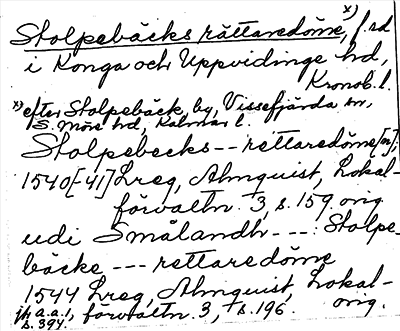 x)
Stolpebäcks rättaredöme, f.rd
i Konga och Uppvidinge hd,
Kronob. l.
x) efter Stolpebäck, by, Vissefjärda sn,
S. Möre hd, Kalmar l.
Stolpebecks -- rettaredöme[n];
1540[-41] Lreg, Almquist, Lokal-
förvaltn. 3, s. 159. orig.
udi Smålandh --- : Stolpe-
bäcke --- rettaredöme
1544 Lreg, Almquist, Lokal-
jfr a.a. 1, förvaltn. 3, s. 196. orig.
s. 394.